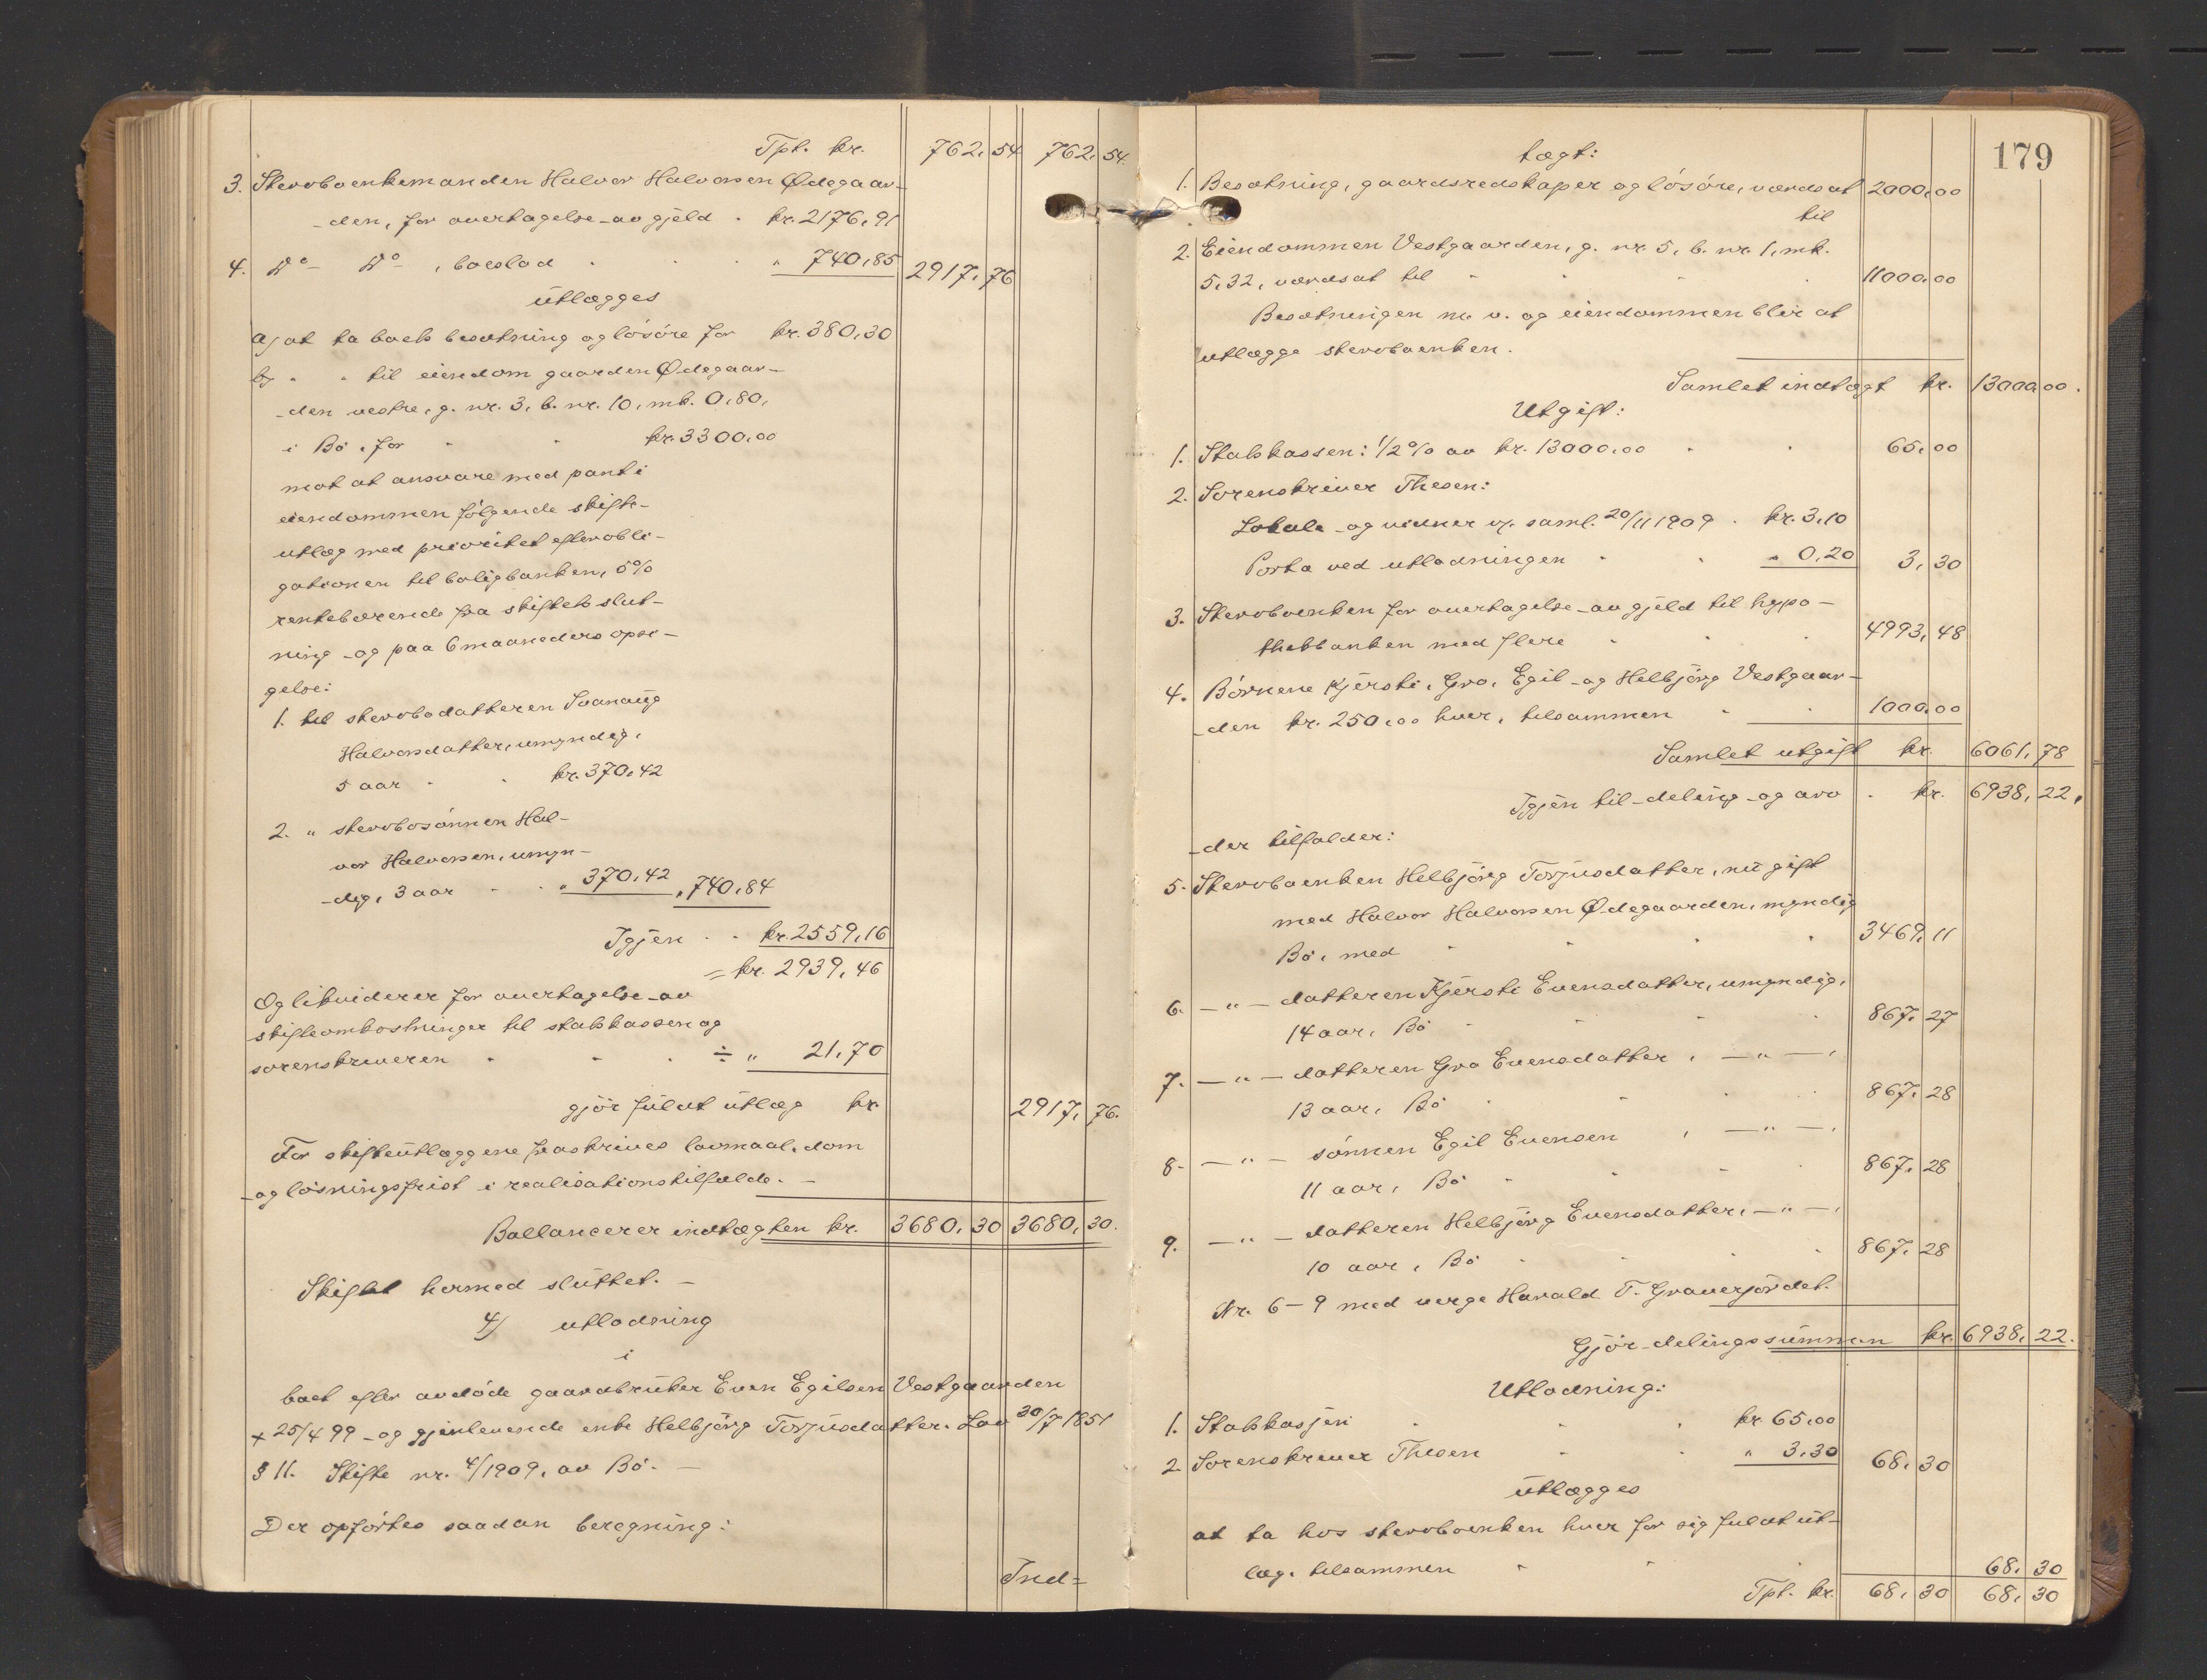 Tpt. kr. 762,54 762,54.
3. Stervboenkemanden Halvor Halvorsen Ødegaar-
-den, for overtagelse av gjeld . kr. 2176,91
4. Do Do , boeslod . . . " 740,85 2917,76
utlægges
a) at ta boets besætning og løsøre for kr. 380,30
b) " " til eiendom gaarden Ødegaar-
-den vestre, g. nr. 3, b. nr. 10, mk. 0,80,
i Bø, for - - kr. 3300,00
mot at ansvare med pant i
eiendommen følgende skifte-
utlæg med prioritet efter obli-
gationen til boligbanken, 5%
rentebærende fra skiftets slut-
ning og paa 6 maaneders opsi-
gelse:
1. til stervbodatteren Svanaug
Halvorsdatter, umyndig,
5 aar - - kr. 370,42
2. " stervbosønnen Hal-
vor Halvorsen, umyn-
dig, 3 aar - - " 370,42 " 740,84
Igjen - - kr. 2559,16
= kr. 2939,46
Og likviderer for overtagelse av
skifteomkostninger til statskassen og
sorenskriveren - - . ÷ " 21,70
gjør fuldt utlæg kr. 2917,76.
For skifteutlæggene fraskrives lovmaal, dom
og løsningsfrist i realisationstilfælde. -
Ballancerer indtægten kr. 3680,30 3680,30.
Skiftet hermed sluttet. -
4) utlodning
i
boet efter avdøde gaardbruker Even Egilsen Vestgaarden
+ 25/4 99 og gjenlevende enke Helbjørg Torjusdatter. Lov 30/7 1851
§ 11. Skifte nr. 4/1909, av Bø. -
Der opførtes saadan beregning:
Ind=
179
tægt:
1. Besætning, gaardsredskaper og løsøre, værdsat 2000,00
til
2. Eiendommen Vestgaarden, g. nr. 5, b. nr. 1, mk.
5,32, værdsat til - - - . 11000,00
Besætningen m. v. og eiendommen blir at
utlægge stervboenken.
Samlet indtægt kr. 13000,00.
Utgift:
1. Statskassen: 1/2% av kr. 13000,00 - . 65,00
2. Sorenskriver Thesen:
Lokale og vidner v. saml. 20/11 1909 . kr. 3,10
Porto ved utlodningen - - " 0,20 3,30
3. Stervboenken for overtagelse av gjeld til hypo-
thekbanken med flere - - . 4993,48
4. Børnene Kjersti, Gro, Egil og Helbjørg Vestgaar-
-den kr. 250,00 hver, tilsammen - . 1000,00
Samlet utgift kr. 6061,78
Igjen til deling og arv . kr. 6938,22,
der tilfalder:
5. Stervboenken Helbjørg Torjusdatter, nu gift
med Halvor Halvorsen Ødegaarden, myndig
Bø, med - - - . 3469,11
6. — " — datteren Kjersti Evensdatter, umyndig,
14 aar, Bø - - - . 867,27
7. — " — datteren Gro Evensdatter , — " — ,
13 aar, Bø - - - . 867,28
8. — " — sønnen Egil Evensen , — " — ,
11 aar, Bø - - - . 867,28
9. — " — datteren Helbjørg Evensdatter, — " — ,
10 aar, Bø - - - . 867,28
Nr. 6 – 9 med verge Harald T. Graverjordet.
Gjør delingssummen kr. 6938,22.
Utlodning:
1. Statskassen - - . kr. 65,00
2. Sorenskriver Thesen - - " 3,30 68,30
utlægges
at ta hos stervboenken hver for sig fuldt ut-
læg, tilsammen - - . 68,30
Tpt. kr. 68,30 68,30